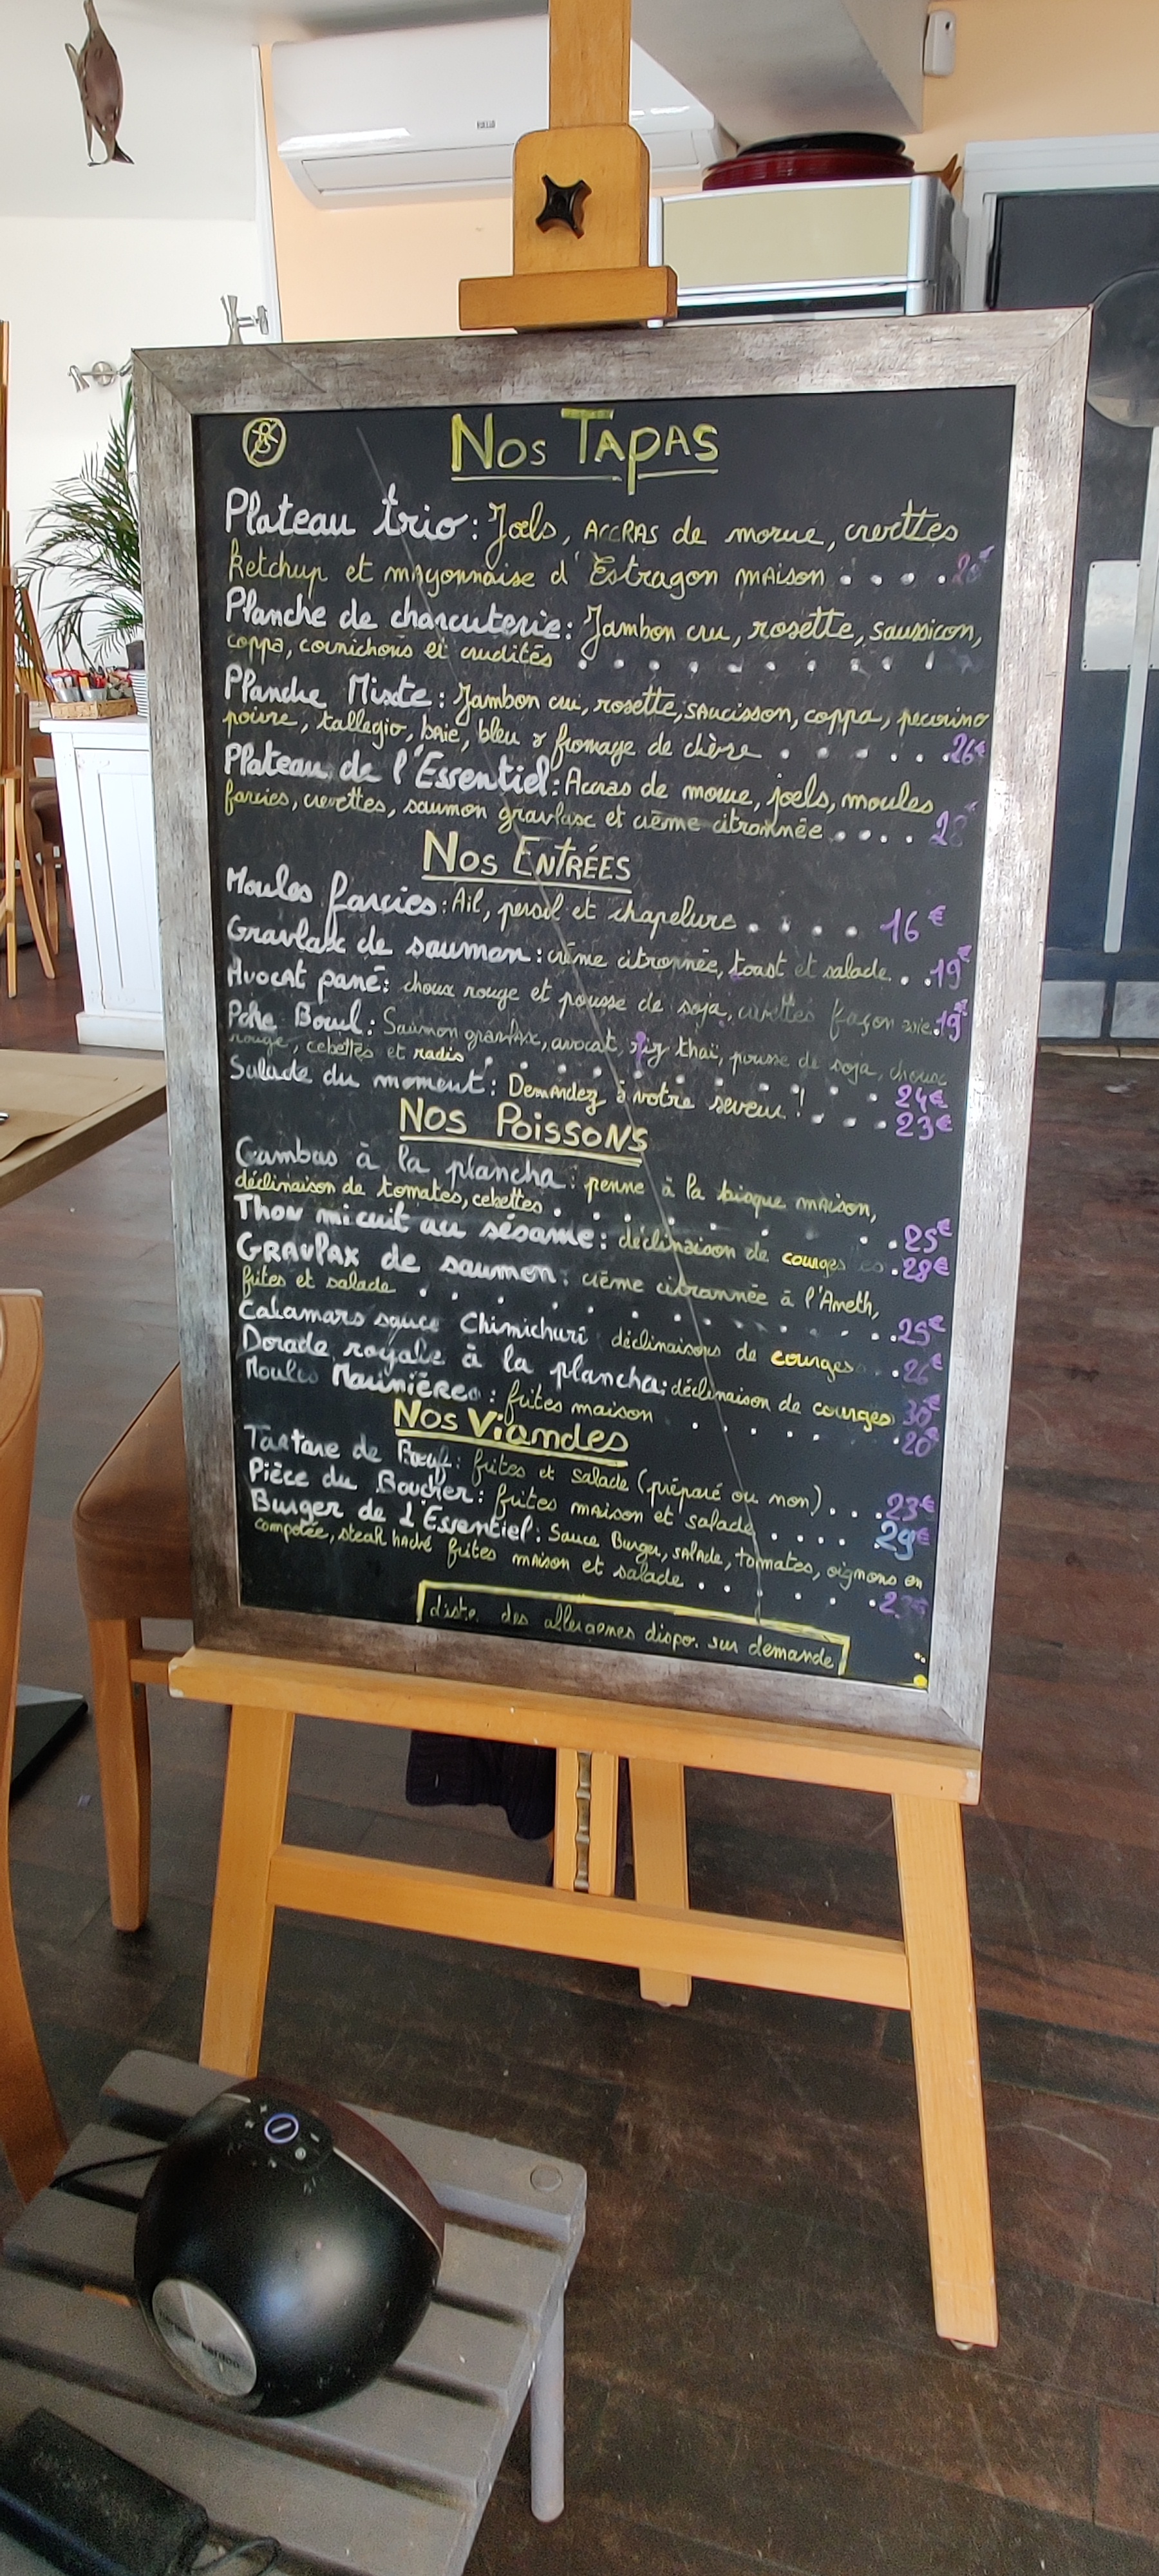 Nos TAPAS
Plateau trio : Joels, ACCRAS de morue, crevettes
Ketchup et mayonnaise d'Estragon MAISON . . . . 20€
Planche de charcuterie : Jambon cru, rosette, saussicon,
coppa, cornichons et crudités . . . . . . . . .
Planche Mixte : Jambon cru, rosette, saucisson, coppa, pecorino
poivre, tallegio, brie, bleu & fromage de chèvre . . . . . . . 26€
Plateau de l'Essentiel : Accras de morue, joels, moules
farcies, crevettes, saumon gravlax et crème citronnée . . . . 28€
Nos ENTRÉES
Moules farcies : Ail, persil et chapelure . . . . . 16€
Gravlax de saumon : crème citronnée, toast et salade . . 19€
Avocat pané : choux rouge et pousse de soja, crevettes façon . 19€
Poke Bowl : Saumon gravlax, avocat, riz thaï, pousse de soja, choux
rouge, cebettes et radis . . . . . . . . . 24€
Salade du moment : Demandez à votre serveur ! . . . . 23€
Nos Poissons
Gambas à la plancha : penne à la bisque maison,
déclinaison de tomates, cebettes . . . . . . . . . 25€
Thon mi cuit au sésame : déclinaison de courges . 28€
GRAVLAX de saumon : crème citronnée à l'Aneth,
frites et salade . . . . . . . . . . . . 25€
Calamars sauce Chimichuri déclinaisons de courges . . 26€
Dorade royale à la plancha : déclinaison de courges 30€
Moules Marinières : frites maison . . . . . . . 20€
Nos Viandes
Tartare de Bœuf : frites et salade (préparé ou non) . . . 23€
Pièce du Boucher : frites maison et salade . . . . . 29€
Burger de L'Essentiel : Sauce Burger, salade, tomates, oignons en
compotée, steak haché frites maison et salade . . . . . .
Liste des allergènes dispo. sur demande